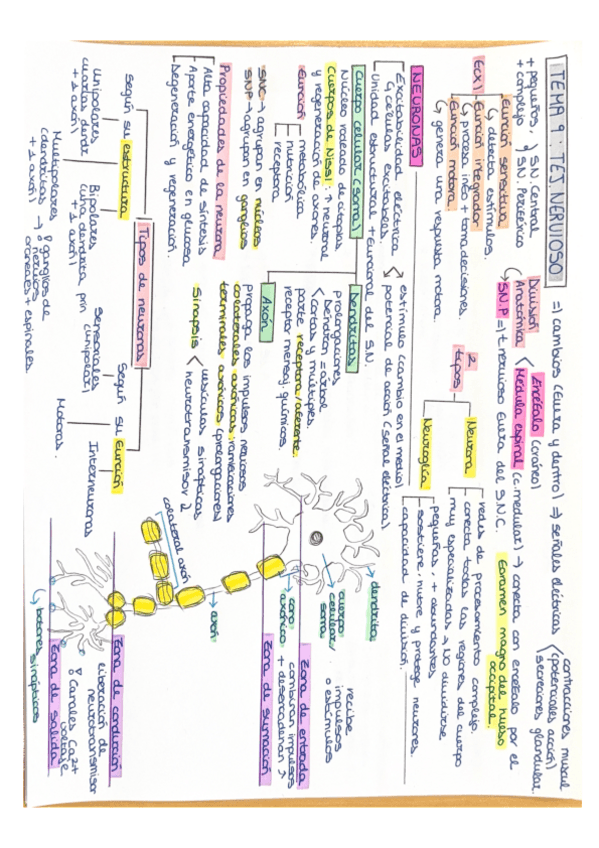 TEMA 9: TEJ. NERVIOSO
=) cambios (fuera y dentro) => señales eléctricas
contracciones muscul
(potenciales acción)
secreciones glandular.
+ pequeños,
+ complejo
SN Central
SN. Periférico
División
Anatómica
Encéfalo (cráneo)
Médula espinal (c. medular) → conecta con encéfalo por el
foramen magno del hueso
occipital.
SN.P => t. nervioso fuera del S.N.C.
FCX
Función sensitiva
↳ detecta estímulos.
Función integrador
↳ procesa info + toma decisiones.
Función motora.
↳ genera una respuesta motora
2
tipos
Neurona
redes de procesamiento complejo.
conecta todas las regiones del cuerpo
muy especializadas → No dividirse
Neuroglía
pequeñas + abundantes
sostiene, nutre y protege neuronas.
capacidad de división.
NEURONAS
Excitabilidad eléctrica
↳ células excitables.
estímulo (cambio en el medio)
potencial de acción (señal eléctrica)
Unidad estructural + funcional del S.N.
Cuerpo celular (soma)
Núcleo rodeado de citoplas
Cuerpos de Nissl: ↑ neuronal
y regeneración de axones.
Función
metabólica
nutrición
receptora
SNC → agrupan en núcleos
SNP → agrupan en ganglios
Dendritas
prolongaciones
Deindron = árbol
cortas y múltiples.
parte receptora/aferente.
receptor mensaj. químicos.
Axón
propaga los impulsos nerviosos
colaterales axónicas: ramificaciones
terminales axónicos (prolongaciones)
Sinapsis
vesículas sinápticas
neurotransmisor
Propiedades de la neurona
Alta capacidad de síntesis
Aporte energético en glucosa
Degeneración y regeneración.
Tipos de neuronas
Según su estructura
Unipolares
+ 1 axón)
Bipolares
(una dendrita prin
+ 1 axón)
Multipolares
(dendritas
+ 1 axón)
→ ganglios de
nervios
craneales + espinales
Según su función
Sensoriales
(unipolar)
Motoras.
Interneuronas
dendrita
cuerpo
celular/
soma
cono
axónico
axón
colateral axón
recibe
impulsos
o estímulos
Zona de entrada
combinan impulsos
+ desencadenan →
Zona de sumación
Zona de conducción
Liberación de
neurotransmisor
Canales Ca2+
voltaje
Zona de salida
↳ botones
sinápticos